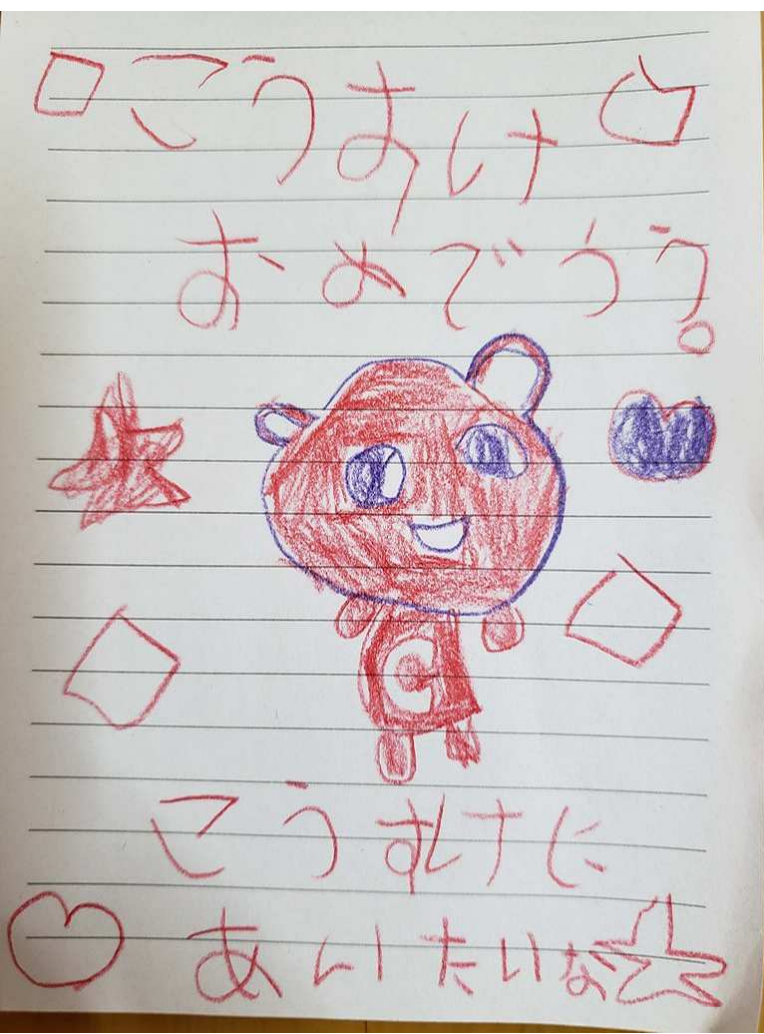 こうすけ
おめでうう。
こうすけに
あいたいな